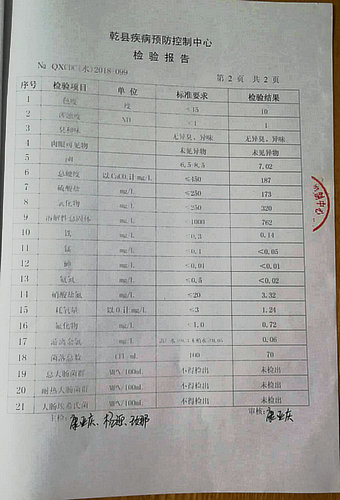 乾县疾病预防控制中心
检 验 报 告
№ QXCDC(水)2018-099 第 2 页 共 2 页
序号 检验项目 单 位 标准要求 检验结果
1 色度 度 ≤15 10
2 浑浊度 NTU ≤1 1
3 臭和味 无异臭、异味 无异臭、异味
4 肉眼可见物 未见异物 未见异物
5 pH 6.5-8.5 7.02
6 总硬度 以CaCO₃计mg/L ≤450 187
7 硫酸盐 mg/L ≤250 173
8 氯化物 mg/L ≤250 320
9 溶解性总固体 mg/L ≤1000 762
10 铁 mg/L ≤0.3 0.14
11 锰 mg/L ≤0.1 <0.05
12 砷 mg/L ≤0.01 <0.01
13 氨氮 mg/L ≤0.5 <0.02
14 硝酸盐氮 mg/L ≤20 3.32
15 耗氧量 以O₂计mg/L ≤3 1.24
16 氟化物 mg/L ≤1.0 0.72
17 游离余氯 mg/L 0.06
18 菌落总数 100 70
19 总大肠菌群 MPN/100mL 不得检出 未检出
20 耐热大肠菌群 MPN/100mL 不得检出 未检出
21 大肠埃希氏菌 MPN/100mL 不得检出 未检出
主检: 审核: